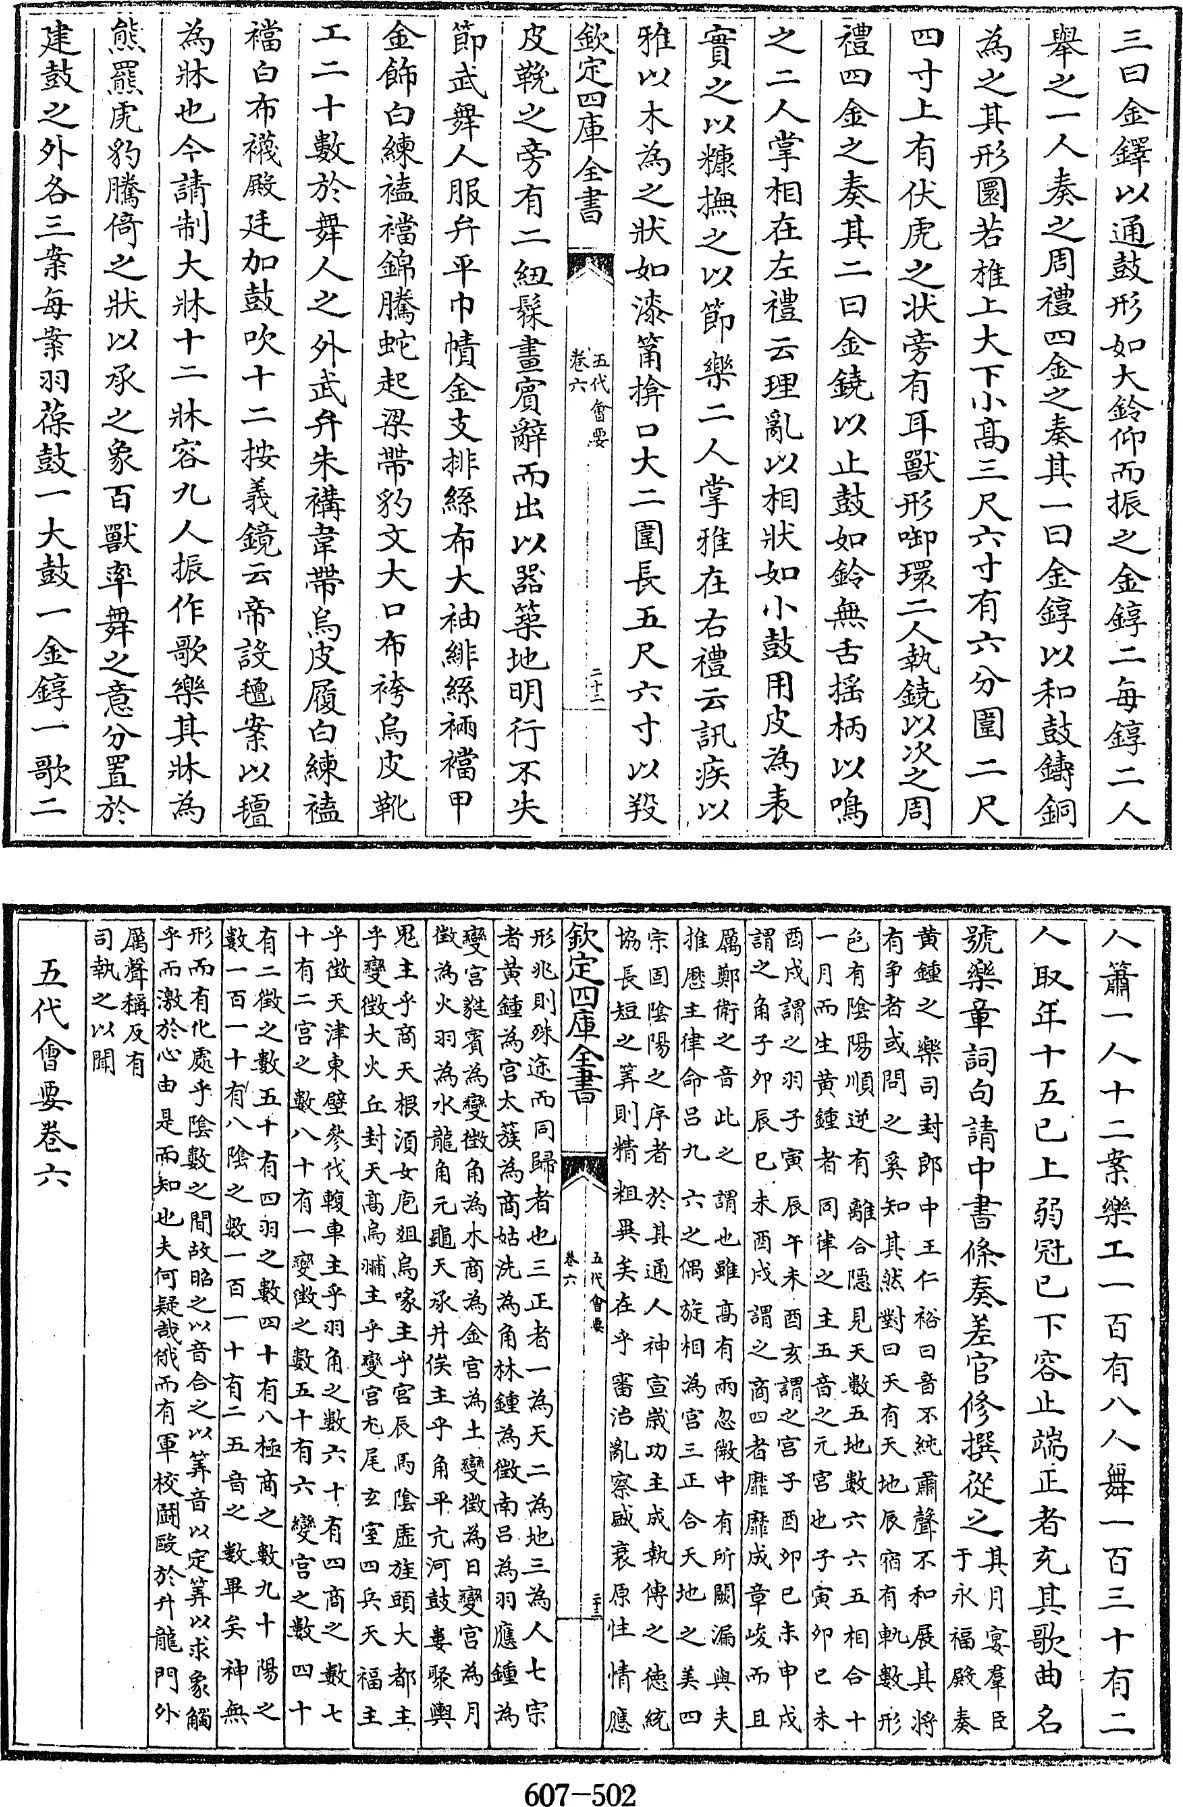 三曰金鐸以通鼓形如大鈴仰而振之金錞二每錞二人
舉之一人奏之周禮四金之奏其一曰金錞以和鼓鑄銅
為之其形圜若椎上大下小髙三尺六寸有六分圍二尺
四寸上有伏虎之狀旁有耳獸形啣環二人執鐃以次之周
禮四金之奏其二曰金鐃以止鼓如鈴無舌揺柄以鳴
之二人掌相在左禮云理亂以相狀如小鼓用皮為表
實之以糠撫之以節樂二人掌雅在右禮云訊疾以
雅以木為之狀如漆筩揜口大二圍長五尺六寸以羖
欽定四庫全書
五代會要
卷六
二十二
皮鞔之旁有二紐髹畫賓辭而出以器築地明行不失
節武舞人服弁平巾幘金支排絲布大袖緋絲裲襠甲
金飾白練䙪襠錦騰蛇起梁帶豹文大口布袴烏皮靴
工二十數於舞人之外武弁朱褠韋帶烏皮履白練䙪
襠白布襪殿廷加鼓吹十二按義鏡云帝設氊案以氊
為牀也今請制大牀十二牀容九人振作歌樂其牀為
熊羆虎豹騰倚之狀以承之象百獸率舞之意分置於
建鼓之外各三案每案羽葆鼓一大鼓一金錞一歌二
人簫一人十二案樂工一百有八人舞一百三十有二
人取年十五已上弱冠已下容止端正者充其歌曲名
號樂章詞句請中書條奏差官修撰從之
其月宴羣臣
于永福殿奏
黄鍾之樂司封郎中王仁裕曰音不純肅聲不和展其將
有争者或問之奚知其然對曰天有天地辰宿有軌數形
色有陰陽順逆有離合隱見天數五地數六六五相合十
一月而生黄鍾者同律之主五音之元宮也子寅卯巳未
酉戍謂之羽子寅辰午未酉亥謂之宮子酉卯巳未申戍
謂之角子卯辰巳未酉戍謂之商四者靡靡成章峻而且
厲鄭衛之音此之謂也雖髙有雨忽微中有所闕漏與夫
推厯主律命吕九六之偶旋相為宮三正合天地之美四
宗固陰陽之序者於其通人神宣嵗功主成執傳之徳統
協長短之筭則精粗畢矣在乎審治亂察盛衰原性情應
欽定四庫全書
五代會要
卷六
二十三
形兆則殊途而同歸者也三正者一為天二為地三為人七宗
者黄鍾為宮太蔟為商姑洗為角林鍾為徵南吕為羽應鍾為
變宮蕤賓為變徵角為木商為金宮為土變徵為日變宮為月
徵為火羽為水龍角元龜天承井侯主乎角平亢河鼓婁聚輿
鬼主乎商天根湏女庖俎鳥喙主乎宮辰馬陰虚旄頭大都主
乎變徵大火丘封天髙鳥翽主乎變宮尨尾玄室四兵天福主
乎徵天津東壁參伐轅車主乎羽角之數六十有四商之數七
十有二宮之數八十有一變徵之數五十有六變宮之數四十
有二徵之數五十有四羽之數四十有八極商之數九十陽之
數一百一十有八陰之數一百一十有二五音之數畢矣神無
形而有化處乎陰數之間故昭之以音合之以筭音以定筭以求象觸
乎而激於心由是而知也夫何疑哉俄而有軍校鬭毆於升龍門外
厲聲稱反有
司執之以聞
五代會要卷六
607-502